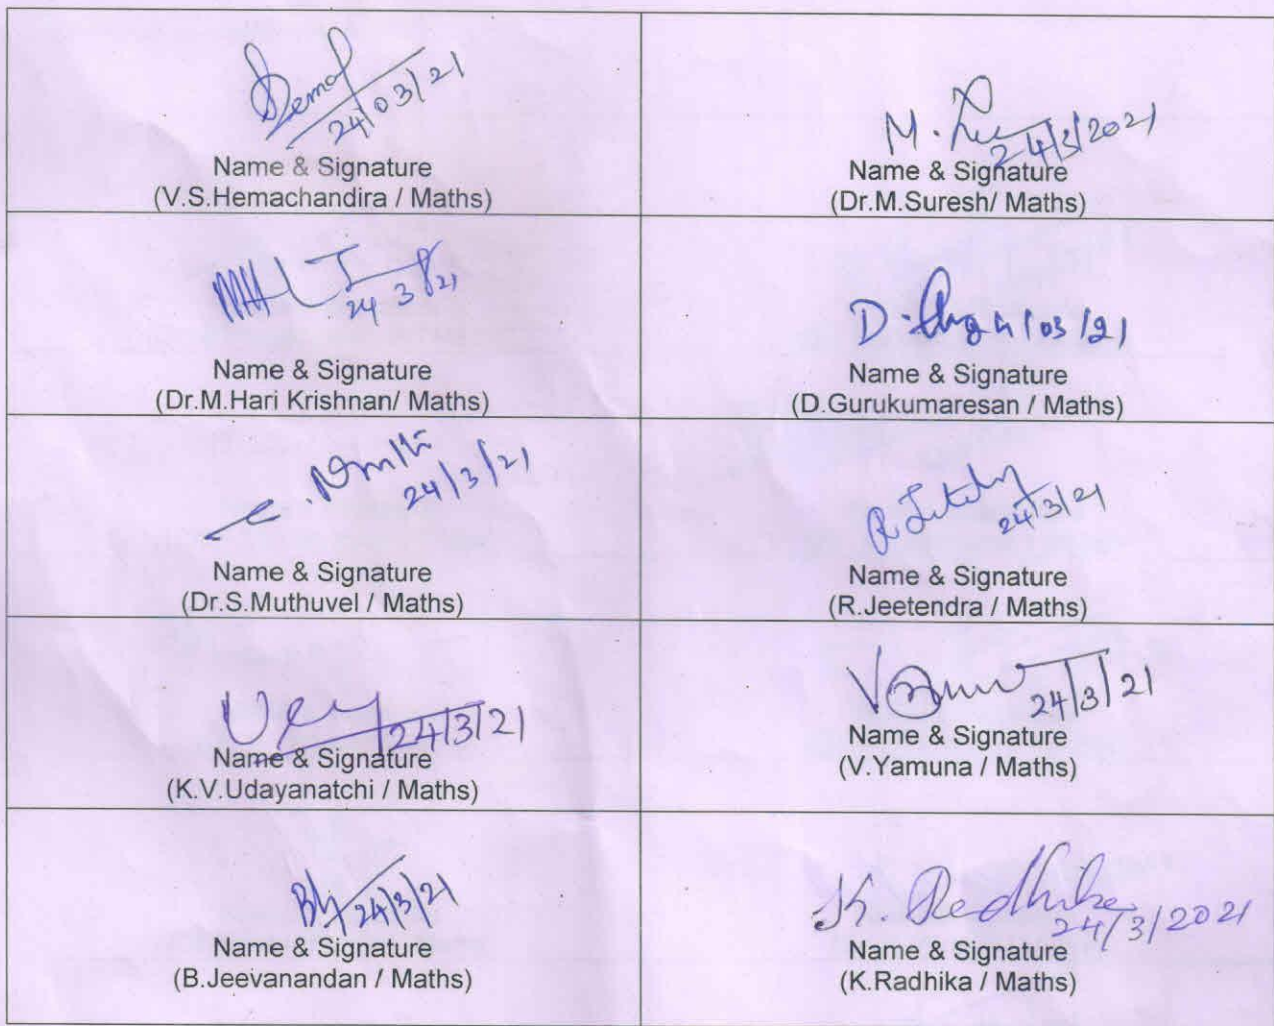 24/03/21
Name & Signature
(V.S.Hemachandira / Maths)
M.
24/3/2021
Name & Signature
(Dr.M.Suresh/ Maths)
24 3 21
Name & Signature
(Dr.M.Hari Krishnan/ Maths)
D.
/03/21
Name & Signature
(D.Gurukumaresan / Maths)
24/3/21
Name & Signature
(Dr.S.Muthuvel / Maths)
R.
24/3/21
Name & Signature
(R.Jeetendra / Maths)
24/3/21
Name & Signature
(K.V.Udayanatchi / Maths)
24/3/21
Name & Signature
(V.Yamuna / Maths)
24/3/21
Name & Signature
(B.Jeevanandan / Maths)
K. Radhika
24/3/2021
Name & Signature
(K.Radhika / Maths)